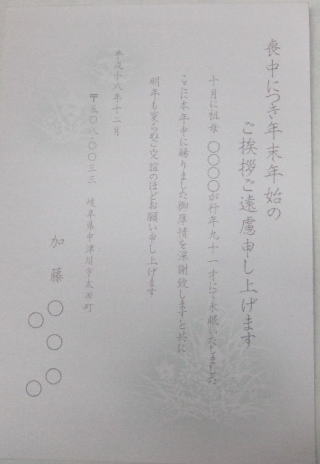 喪中につき年末年始の
ご挨拶ご遠慮申し上げます
十月に祖母 〇〇〇〇が行年九十一才にて永眠いたしました
ここに本年中に賜りました御厚情を深謝致しますと共に
明年も変らぬご交誼のほどお願い申し上げます
平成十八年十二月
〒五〇八-〇〇三三 岐阜県中津川市太田町
加藤〇〇〇
〇〇